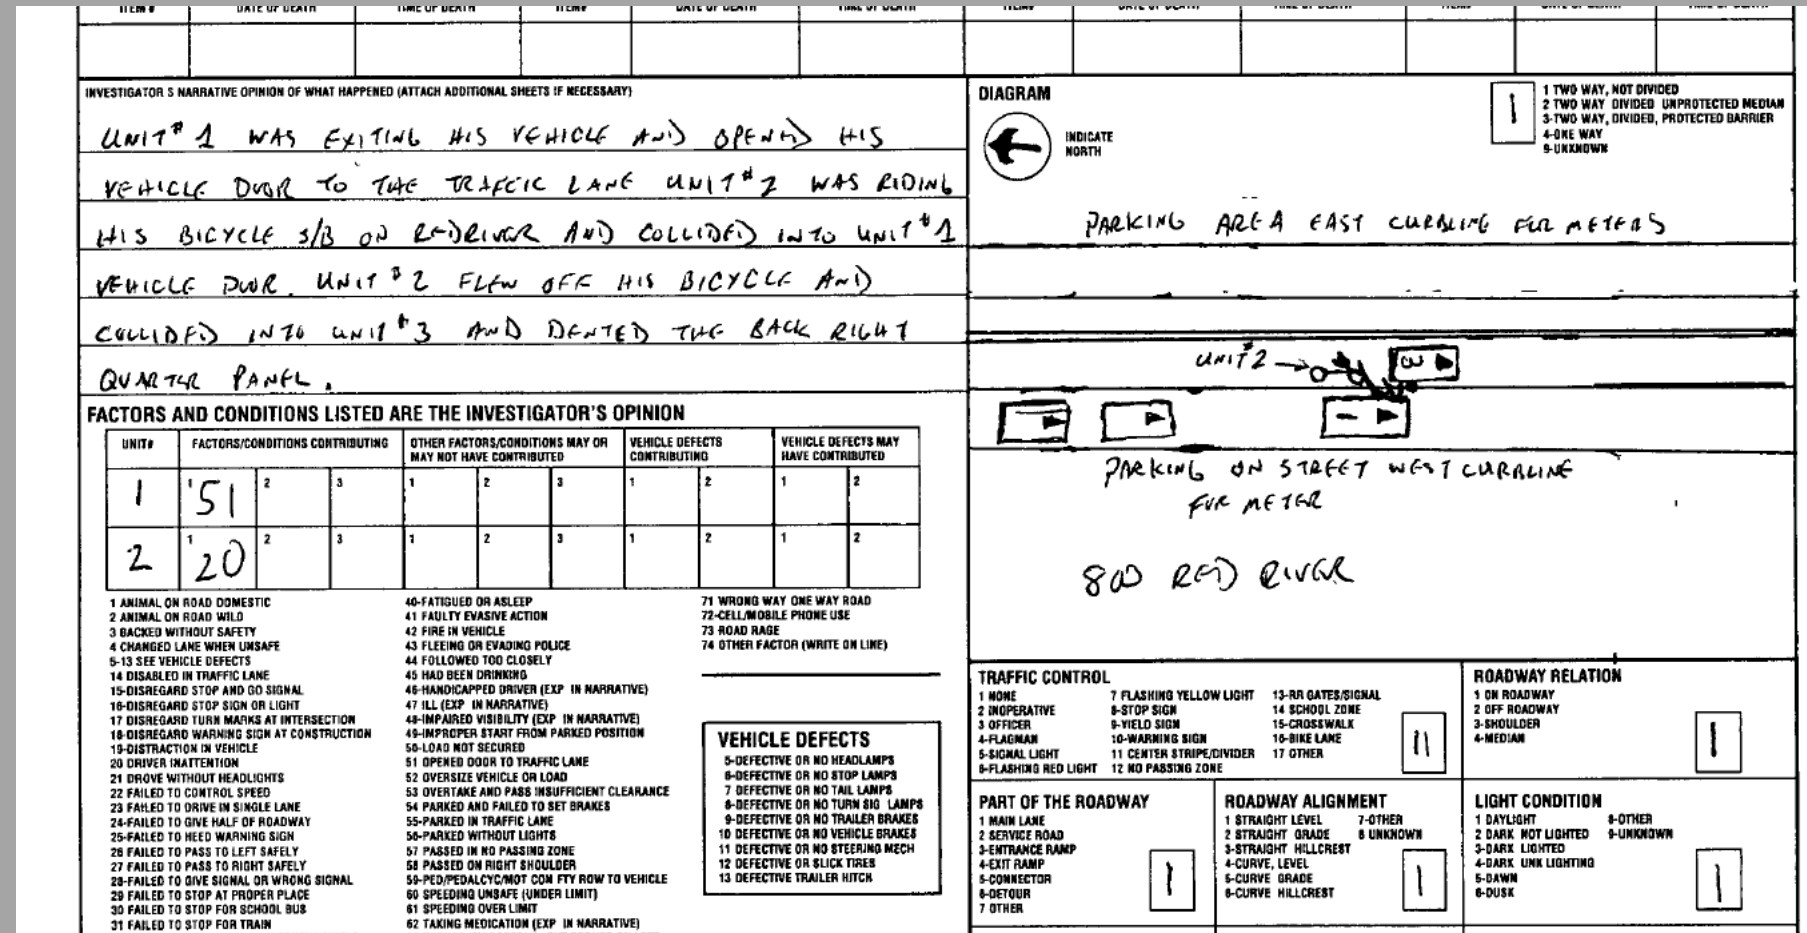 ITEM # DATE OF DEATH TIME OF DEATH ITEM# DATE OF DEATH TIME OF DEATH ITEM# DATE OF DEATH TIME OF DEATH ITEM# DATE OF DEATH TIME OF DEATH
INVESTIGATOR S NARRATIVE OPINION OF WHAT HAPPENED (ATTACH ADDITIONAL SHEETS IF NECESSARY)
UNIT# 1 WAS EXITING HIS VEHICLE AND OPENED HIS
VEHICLE DOOR TO THE TRAFFIC LANE UNIT #2 WAS RIDING
HIS BICYCLE S/B ON REDRIVER AND COLLIDED INTO UNIT #1
VEHICLE DOOR. UNIT #2 FLEW OFF HIS BICYCLE AND
COLLIDED INTO UNIT #3 AND DENTED THE BACK RIGHT
QUARTER PANEL.
DIAGRAM
INDICATE
NORTH
1
1 TWO WAY, NOT DIVIDED
2 TWO WAY DIVIDED UNPROTECTED MEDIAN
3-TWO WAY, DIVIDED, PROTECTED BARRIER
4-ONE WAY
9-UNKNOWN
PARKING AREA EAST CURBLINE FOR METERS
UNIT #2
3
1
PARKING ON STREET WEST CURBLINE
FOR METER
800 RED RIVER
FACTORS AND CONDITIONS LISTED ARE THE INVESTIGATOR'S OPINION
UNIT# FACTORS/CONDITIONS CONTRIBUTING OTHER FACTORS/CONDITIONS MAY OR MAY NOT HAVE CONTRIBUTED VEHICLE DEFECTS CONTRIBUTING VEHICLE DEFECTS MAY HAVE CONTRIBUTED
1 1 51 2 3 1 2 3 1 2 1 2
2 1 20 2 3 1 2 3 1 2 1 2
1 ANIMAL ON ROAD DOMESTIC
2 ANIMAL ON ROAD WILD
3 BACKED WITHOUT SAFETY
4 CHANGED LANE WHEN UNSAFE
5-13 SEE VEHICLE DEFECTS
14 DISABLED IN TRAFFIC LANE
15-DISREGARD STOP AND GO SIGNAL
16-DISREGARD STOP SIGN OR LIGHT
17 DISREGARD TURN MARKS AT INTERSECTION
18-DISREGARD WARNING SIGN AT CONSTRUCTION
19-DISTRACTION IN VEHICLE
20 DRIVER INATTENTION
21 DROVE WITHOUT HEADLIGHTS
22 FAILED TO CONTROL SPEED
23 FAILED TO DRIVE IN SINGLE LANE
24-FAILED TO GIVE HALF OF ROADWAY
25-FAILED TO HEED WARNING SIGN
26 FAILED TO PASS TO LEFT SAFELY
27 FAILED TO PASS TO RIGHT SAFELY
28-FAILED TO GIVE SIGNAL OR WRONG SIGNAL
29 FAILED TO STOP AT PROPER PLACE
30 FAILED TO STOP FOR SCHOOL BUS
31 FAILED TO STOP FOR TRAIN
40-FATIGUED OR ASLEEP
41 FAULTY EVASIVE ACTION
42 FIRE IN VEHICLE
43 FLEEING OR EVADING POLICE
44 FOLLOWED TOO CLOSELY
45 HAD BEEN DRINKING
46-HANDICAPPED DRIVER (EXP IN NARRATIVE)
47 ILL (EXP IN NARRATIVE)
48-IMPAIRED VISIBILITY (EXP IN NARRATIVE)
49-IMPROPER START FROM PARKED POSITION
50-LOAD NOT SECURED
51 OPENED DOOR TO TRAFFIC LANE
52 OVERSIZE VEHICLE OR LOAD
53 OVERTAKE AND PASS INSUFFICIENT CLEARANCE
54 PARKED AND FAILED TO SET BRAKES
55-PARKED IN TRAFFIC LANE
56-PARKED WITHOUT LIGHTS
57 PASSED IN NO PASSING ZONE
58 PASSED ON RIGHT SHOULDER
59-PED/PEDALCYC/MOT CON FTY ROW TO VEHICLE
60 SPEEDING UNSAFE (UNDER LIMIT)
61 SPEEDING OVER LIMIT
62 TAKING MEDICATION (EXP IN NARRATIVE)
71 WRONG WAY ONE WAY ROAD
72-CELL/MOBILE PHONE USE
73 ROAD RAGE
74 OTHER FACTOR (WRITE ON LINE)
VEHICLE DEFECTS
5-DEFECTIVE OR NO HEADLAMPS
6-DEFECTIVE OR NO STOP LAMPS
7 DEFECTIVE OR NO TAIL LAMPS
8-DEFECTIVE OR NO TURN SIG LAMPS
9-DEFECTIVE OR NO TRAILER BRAKES
10 DEFECTIVE OR NO VEHICLE BRAKES
11 DEFECTIVE OR NO STEERING MECH
12 DEFECTIVE OR SLICK TIRES
13 DEFECTIVE TRAILER HITCH
TRAFFIC CONTROL
1 NONE
2 INOPERATIVE
3 OFFICER
4-FLAGMAN
5-SIGNAL LIGHT
6-FLASHING RED LIGHT
7 FLASHING YELLOW LIGHT
8-STOP SIGN
9-YIELD SIGN
10-WARNING SIGN
11 CENTER STRIPE/DIVIDER
12 NO PASSING ZONE
13-RR GATES/SIGNAL
14 SCHOOL ZONE
15-CROSSWALK
16-BIKE LANE
17 OTHER
11
ROADWAY RELATION
1 ON ROADWAY
2 OFF ROADWAY
3-SHOULDER
4-MEDIAN
1
PART OF THE ROADWAY
1 MAIN LANE
2 SERVICE ROAD
3-ENTRANCE RAMP
4-EXIT RAMP
5-CONNECTOR
6-DETOUR
7 OTHER
1
ROADWAY ALIGNMENT
1 STRAIGHT LEVEL
2 STRAIGHT GRADE
3-STRAIGHT HILLCREST
4-CURVE, LEVEL
5-CURVE GRADE
6-CURVE HILLCREST
7-OTHER
8 UNKNOWN
1
LIGHT CONDITION
1 DAYLIGHT
2 DARK NOT LIGHTED
3-DARK LIGHTED
4-DARK UNK LIGHTING
5-DAWN
6-DUSK
8-OTHER
9-UNKNOWN
1